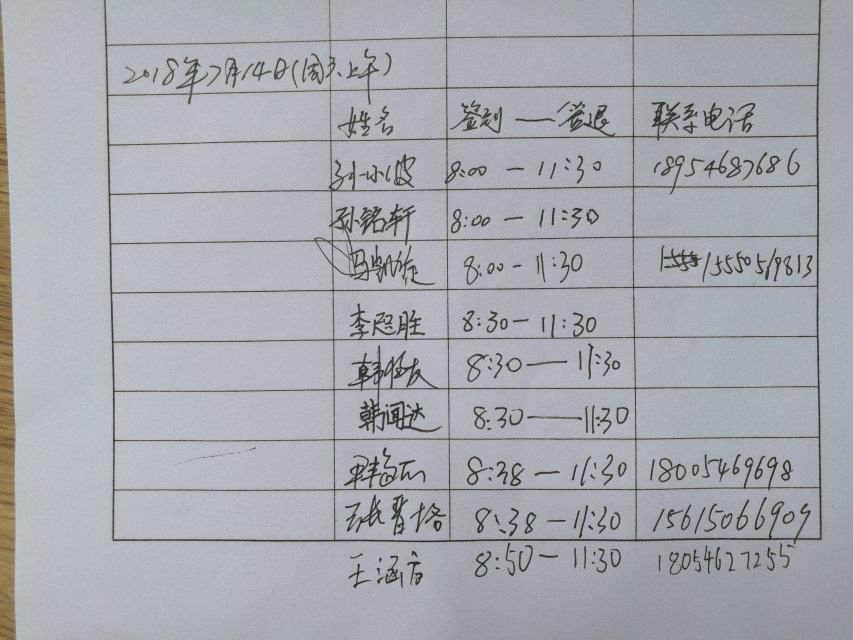 2018年7月14日(周六上午)
姓名 签到 — 签退 联系电话
孙小波 8:00 — 11:30 18954687686
孙铭轩 8:00 — 11:30
马凯 8:00 - 11:30 15550519813
李 胜 8:30 — 11:30
韩 友 8:30 — 11:30
韩闻达 8:30 — 11:30
8:38 — 11:30 18005469698
张晋培 8:38 — 11:30 15615066909
王涵 8:50 — 11:30 18054627255